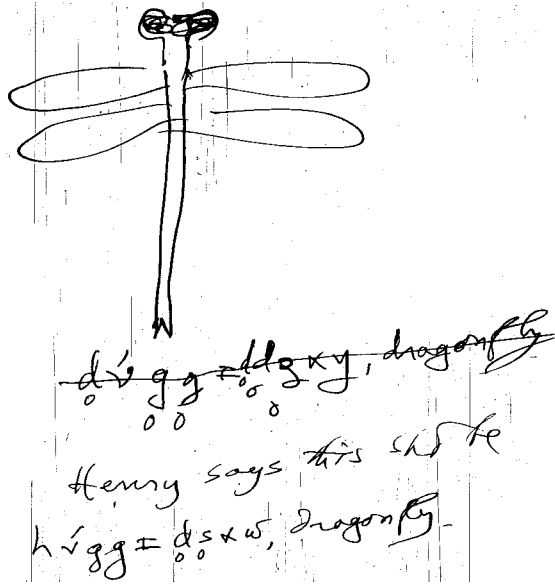 d̥ v́ g̥ g̥ = d̥d̥z̥ x y, dragonfly
Henry says this shd be
h v́ g g = d̥ s̥ x w, dragonfly